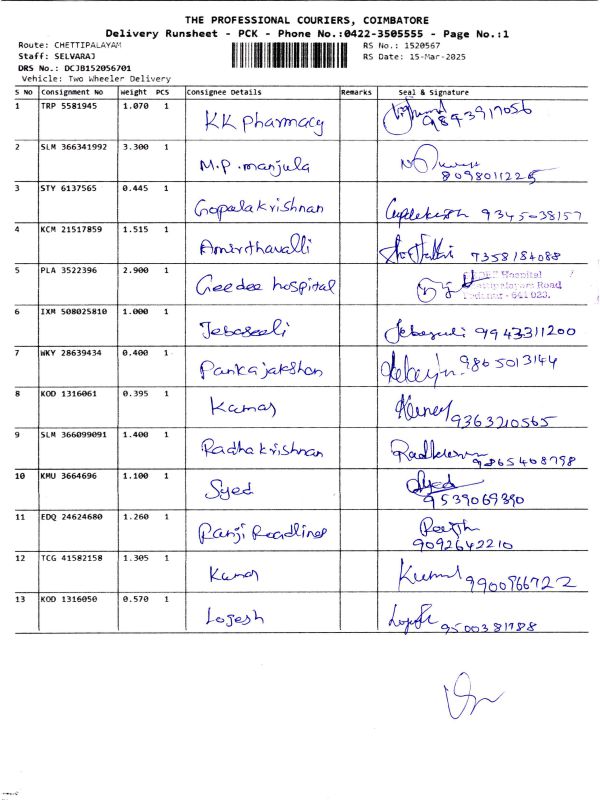 THE PROFESSIONAL COURIERS, COIMBATORE
Delivery Runsheet - PCK - Phone No.:0422-3505555 - Page No.:1
Route: CHETTIPALAYAM RS No.: 1520567
Staff: SELVARAJ RS Date: 15-Mar-2025
DRS No.: DCJB152056701
Vehicle: Two Wheeler Delivery
S NO Consignment No Weight PCS Consignee Details Remarks Seal & Signature
1 TRP 5581945 1.070 1 KK Pharmacy 9843917056
2 SLM 366341992 3.300 1 M.P. manjula 8098011225
3 STY 6137565 0.445 1 Gopalakrishnan 9345-38157
4 KCM 21517859 1.515 1 Amirthavalli 7358184088
5 PLA 3522396 2.900 1 Geedee hospital Hospital
Road
641 023.
6 IXM 508025810 1.000 1 Jebaseeli 9943311200
7 WKY 28639434 0.400 1 Pankajakshan 9865013144
8 KOD 1316061 0.395 1 Kumar 9363210565
9 SLM 366099091 1.400 1 Radhakrishnan 9865408798
10 KMU 3664696 1.100 1 Syed Syed
9539069390
11 EDQ 24624680 1.260 1 Ranji Readlines
9092642210
12 TCG 41582158 1.305 1 Kumar 9900966722
13 KOD 1316050 0.570 1 Logesh 9500381788